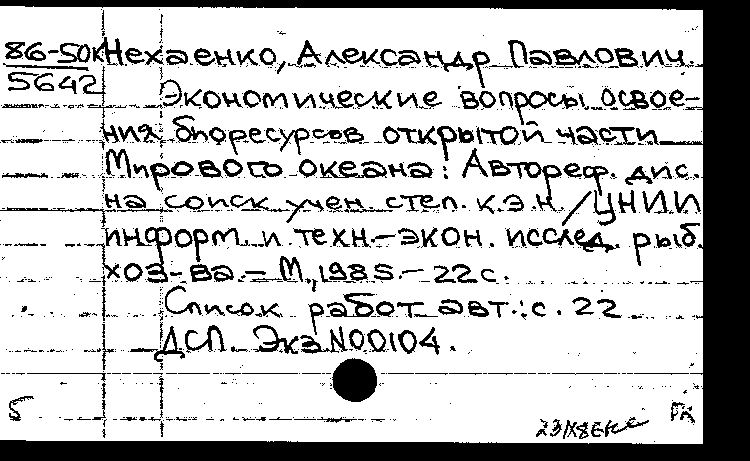 86-50к Нехаенко, Александр Павлович.
5642
Экономические вопросы освое-
ния биоресурсов открытой части
Мирового океана: Автореф. дис.
на соиск учен. степ. к.э.н. / ЦНИИ
информ. и техн.-экон. исслед. рыб.
хоз-ва. - М., 1985. - 22 с.
Список работ авт.: с. 22
ДСП. Экз N00104.
5
ГК